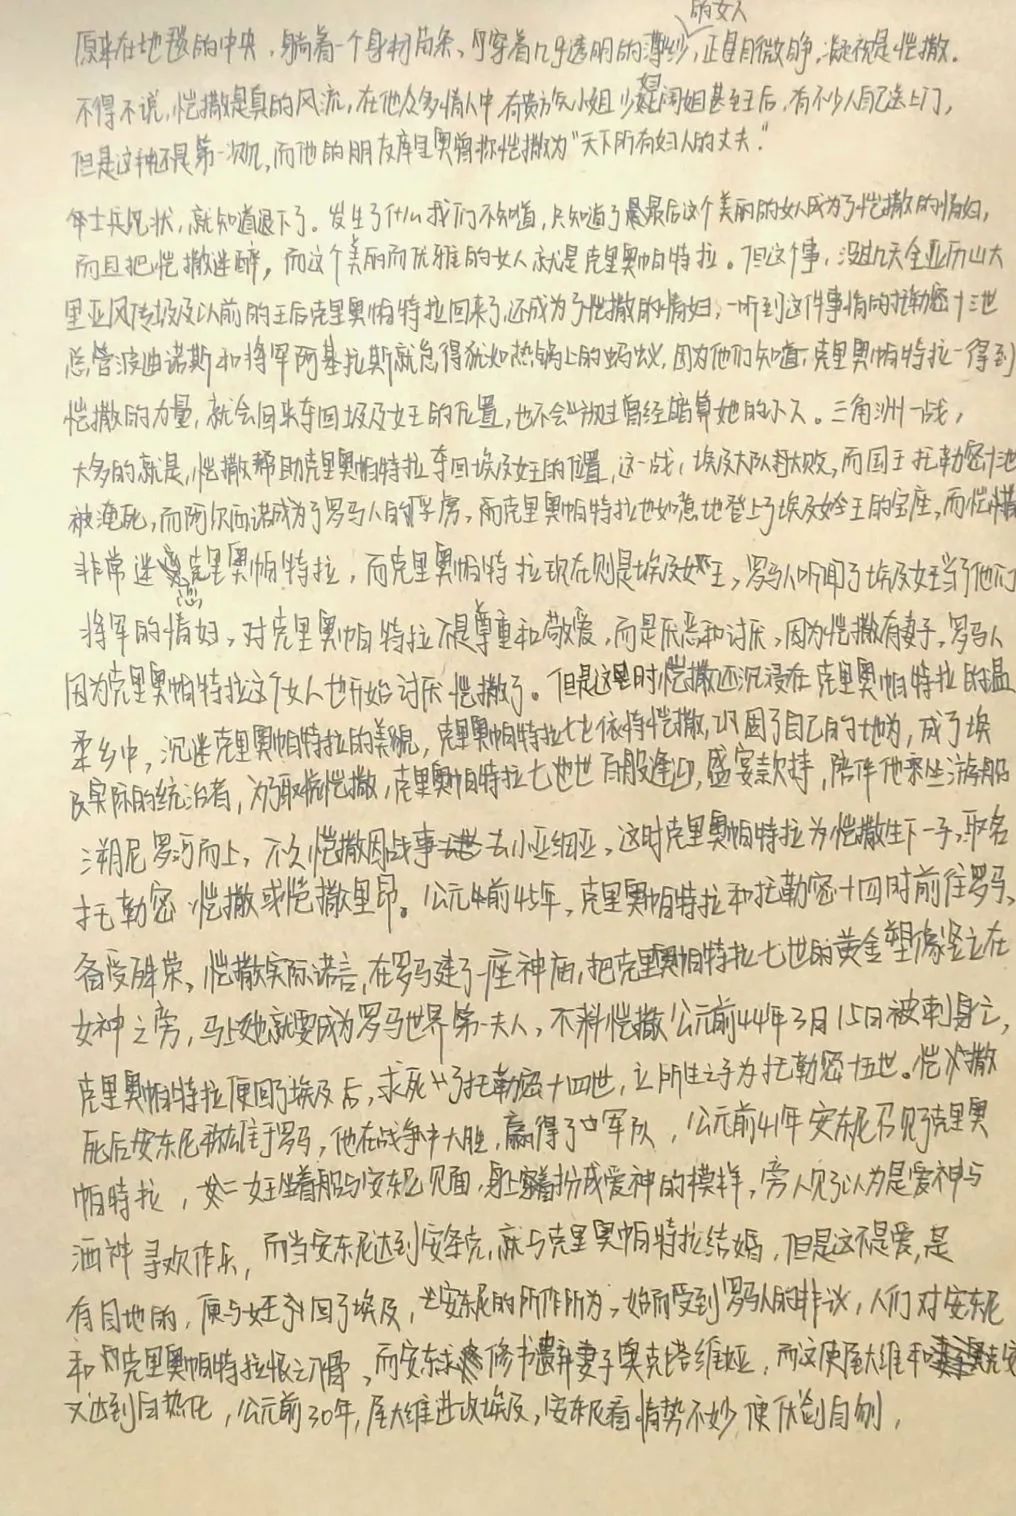 的女人
原来在地毯的中央，躺着一个身材苗条、穿着几乎透明的薄纱，正是目微睁，凝视是恺撒。
不得不说，恺撒是真的风流，在他众多情人中有贵族小姐少妇闺姐甚至王后，有不少人自己送上门，
但是这种还是第一次见，而他的朋友库里奥曾称恺撒为“天下所有妇人的丈夫”.
士兵见状，就知道退下了。发生了什么我们不知道，只知道了最后这个美丽的女人成为了恺撒的情妇，
而且把恺撒迷醉，而这个美丽而优雅的女人就是克里奥帕特拉。但这个事，没几天全亚历山大
里亚风传埃及以前的王后克里奥帕特拉回来了，还成为了恺撒的情妇，一听到这件事情的托勒密十三世
总管波迪诺斯和将军阿基拉斯就急得犹如热锅上的蚂蚁，因为他们知道，克里奥帕特拉一得到
恺撒的力量，就会回来夺回埃及女王的位置，也不会放过曾经暗算她的人。三角洲一战，
大多的就是，恺撒帮助克里奥帕特拉夺回埃及女王的位置，这一战，埃及大队大败，而国王托勒密十三世
被淹死，而阿尔西诺成为了罗马人的俘虏，而克里奥帕特拉也如意地登上了埃及女王的宝座，而恺撒
非常迷恋克里奥帕特拉，而克里奥帕特拉现在则是埃及女王，罗马人听闻了埃及女王当了他们
将军的情妇，对克里奥帕特拉不是尊重和敬爱，而是厌恶和讨厌，因为恺撒有妻子，罗马人
因为克里奥帕特拉这个女人也开始讨厌恺撒了。但是这里时恺撒还沉浸在克里奥帕特拉的温
柔乡中，沉迷克里奥帕特拉的美貌，克里奥帕特拉七世依恃恺撒，巩固了自己的地为，成了埃
及实际的统治者，为了取悦恺撒，克里奥帕特拉七世百般逢迎，盛宴款待，陪伴他乘坐游船
溯尼罗河而上，不久恺撒因战事去小亚细亚，这时克里奥帕特拉为恺撒生下一子，取名
托勒密·恺撒或恺撒里昂。公元前45年，克里奥帕特拉和托勒密十四时前往罗马，
备受殊荣。恺撒实际诺言，在罗马建了一座神庙，把克里奥帕特拉七世的黄金塑像竖立在
女神之旁，马上她就要成为罗马世界第一夫人，不料恺撒公元前44年3月15日被刺身亡，
克里奥帕特拉便回了埃及后，求死了托勒密十四世，立所生之子为托勒密十五世。恺撒
死后安东尼称雄于罗马，他在战争中大胜，赢得了军队，公元前41年安东尼召见了克里奥
帕特拉，女王坐着船与安东尼见面，身上穿着扮成爱神的模样，旁人见了以为是爱神与
酒神寻欢作乐，而当安东尼达到安条克，就与克里奥帕特拉结婚，但是这不是爱，是
有目地的，便与女王到回了埃及，安东尼的所作所为，始而受到罗马人的非议，人们对安东尼
和克里奥帕特拉恨之入骨，而安东尼修书遗弃妻子奥克塔维娅，而这使屋大维和
又达到白热化，公元前30年，屋大维进攻埃及，安东尼看情势不妙便伏剑自刎，